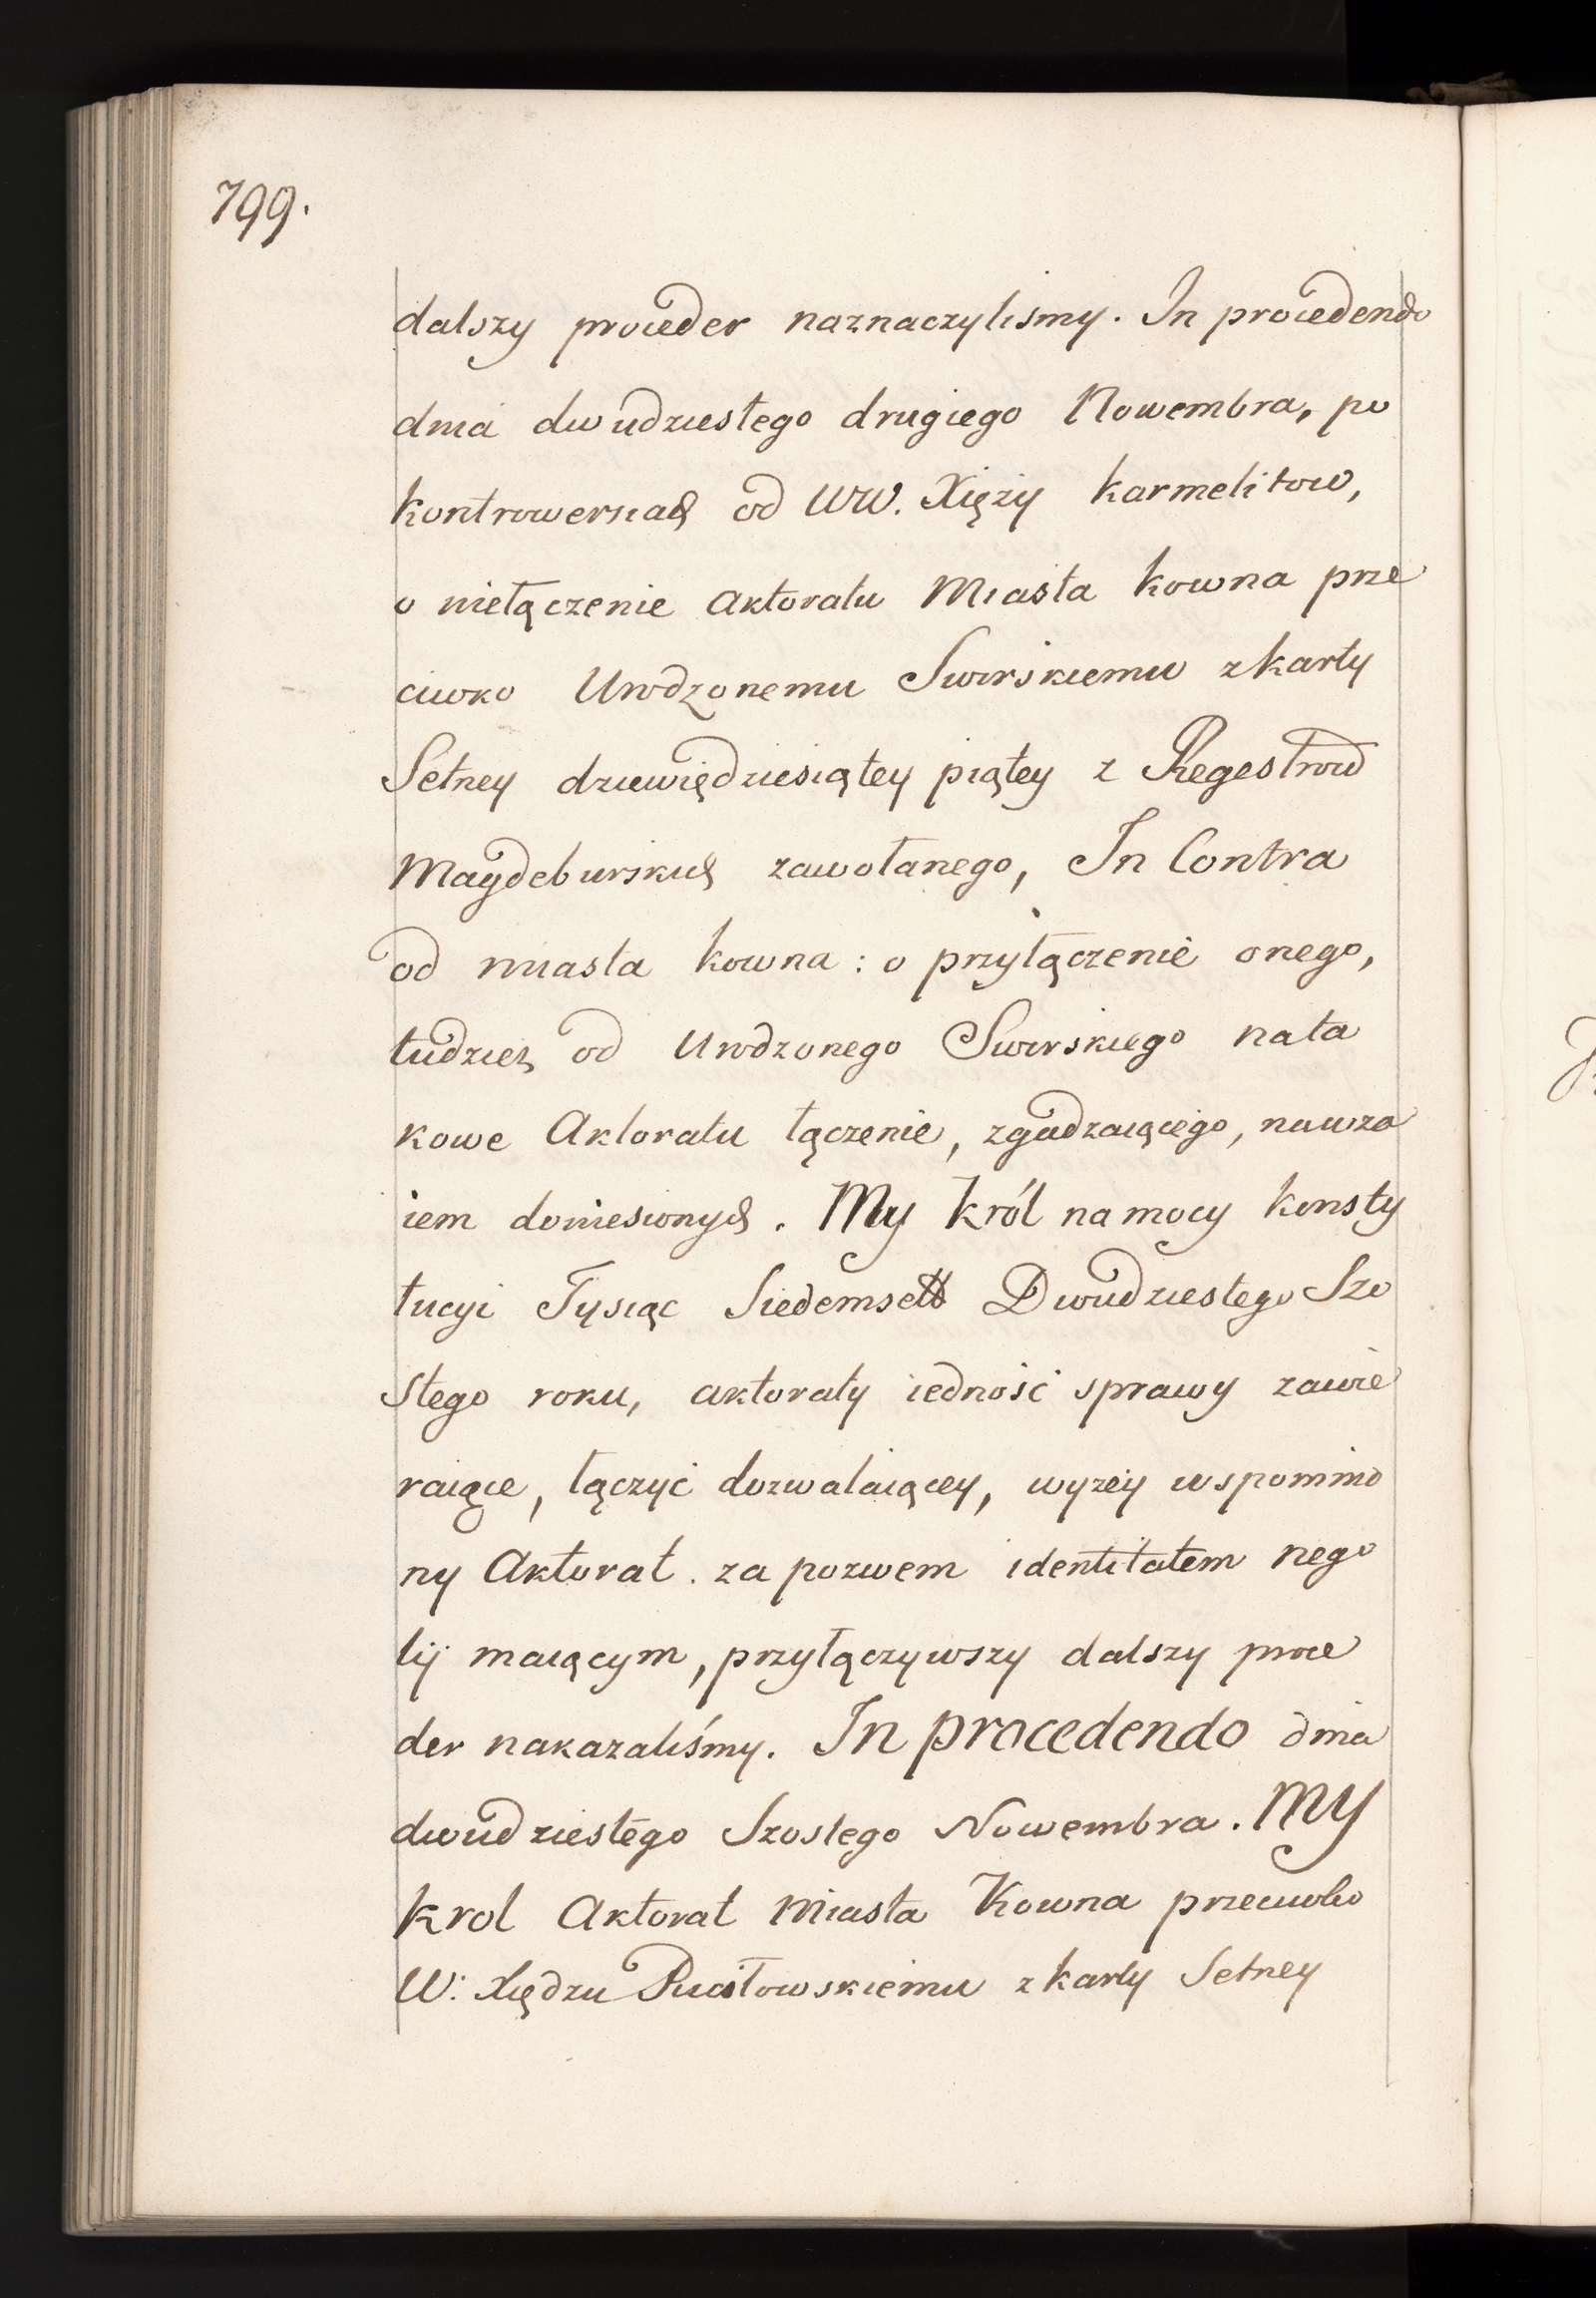 799.
dalszy proceder naznaczylismy. In procedendo
dnia dwudziestego drugiego Nowembra, po
kontrowersiach od WW. Xięży karmelitow,
o niełączenie aktoratu Miasta kowna prze
ciwko Urodzonemu Swirskiemu z karty
Setney dziewiędziesiątey piątey z Regestrow
Magdeburskich zawołanego, In Contra
od miasta kowna : o przyłączenie onego,
tudzież od Urodzonego Swirskiego na ta
kowe Aktoratu łączenie, zgadzaiącego, nawza
iem doniesionych. My król na mocy konsty
tucyi Tysiąc Siedemset Dwudziestego Szo
stego roku, aktoraty iedność sprawy zawie
raiące, łączyć dozwalaiącey, wyżey wspomnio
ny Aktorat. za pozwem identitatem nego
tij maiącym, przyłączywszy dalszy proce
der nakazaliśmy. In procedendo dnia
dwudziestego Szostego Nowembra. My
krol Aktorat Miasta Kowna przeciwko
W: Xiędzu z karty Setney